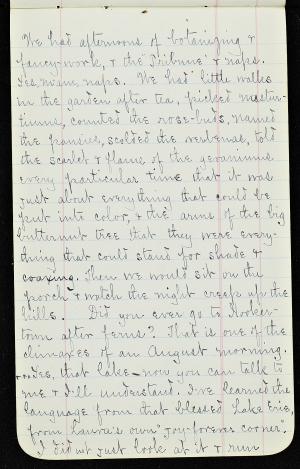 We had afternoons of botanizing &
fancy-work, & the Tribune & naps.
Yes, mum, naps. We had little walks
in the garden after tea, picked nastur-
tiums, counted the rose-buds, named
the pansies, scolded the verbenas, told
the scarlet & flame of the geraniums
every particular time that it was
just about everything that could be
put into color, & the arms of the big
butternut tree that they were every-
thing that could stand for shade &
coaxing. Then we would sit on the
porch & watch the night creep up the
hills. Did you ever go to Hooker-
town after ferns? That is one of the
climaxes of an August morning.
Yes, that lake—now you can talk to
me & I'll understand. I've learned the
language from that blessed Lake Erie,
from Laura's own "joy-forever corner".
I did not just look at it & run